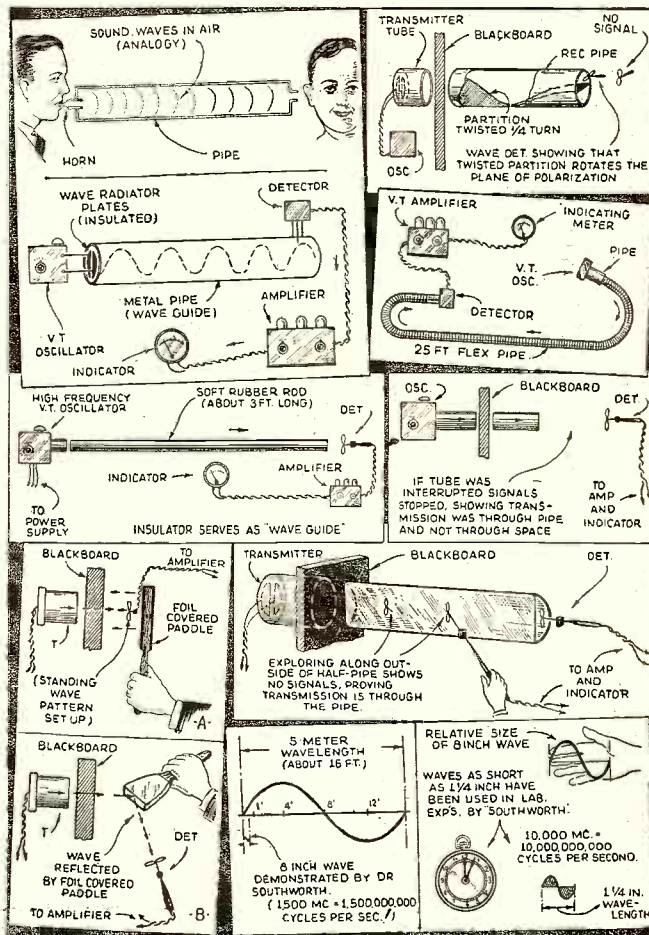 SOUND WAVES IN AIR
(ANALOGY)
HORN
PIPE
TRANSMITTER
TUBE
BLACKBOARD
NO
SIGNAL
REC PIPE
PARTITION
TWISTED 1/4 TURN
OSC
WAVE DET. SHOWING THAT
TWISTED PARTITION ROTATES THE
PLANE OF POLARIZATION
WAVE RADIATOR
PLATES
(INSULATED)
DETECTOR
METAL PIPE
(WAVE GUIDE)
AMPLIFIER
V.T
OSCILLATOR
INDICATOR
V.T AMPLIFIER
INDICATING
METER
PIPE
V.T.
OSC.
DETECTOR
25 FT FLEX PIPE
HIGH FREQUENCY
V.T. OSCILLATOR
SOFT RUBBER ROD
(ABOUT 3 FT. LONG)
DET.
INDICATOR
AMPLIFIER
TO
POWER
SUPPLY
INSULATOR SERVES AS "WAVE GUIDE"
OSC.
BLACKBOARD
DET.
IF TUBE WAS
INTERRUPTED SIGNALS
STOPPED, SHOWING TRANS-
MISSION WAS THROUGH PIPE
AND NOT THROUGH SPACE
TO
AMP
AND
INDICATOR
BLACKBOARD
TO
AMPLIFIER
FOIL
COVERED
PADDLE
T
(STANDING
WAVE
PATTERN
SET UP)
-A-
TRANSMITTER
BLACKBOARD
DET.
EXPLORING ALONG OUT-
SIDE OF HALF-PIPE SHOWS
NO SIGNALS, PROVING
TRANSMISSION IS THROUGH
THE PIPE.
TO AMP
AND
INDICATOR
BLACKBOARD
T
DET
WAVE
REFLECTED
BY FOIL COVERED
PADDLE
TO AMPLIFIER
-B-
5 METER
WAVELENGTH
(ABOUT 16 FT.)
1'
4'
8'
12'
8 INCH WAVE
DEMONSTRATED BY DR
SOUTHWORTH.
(1,500 MC = 1,500,000,000
CYCLES PER SEC.!)
RELATIVE SIZE
OF 8 INCH WAVE
WAVES AS SHORT
AS 1 1/4 INCH HAVE
BEEN USED IN LAB.
EXP'S. BY "SOUTHWORTH"
10,000 MC. =
10,000,000,000
CYCLES PER SECOND.
1 1/4 IN.
WAVE-
LENGTH